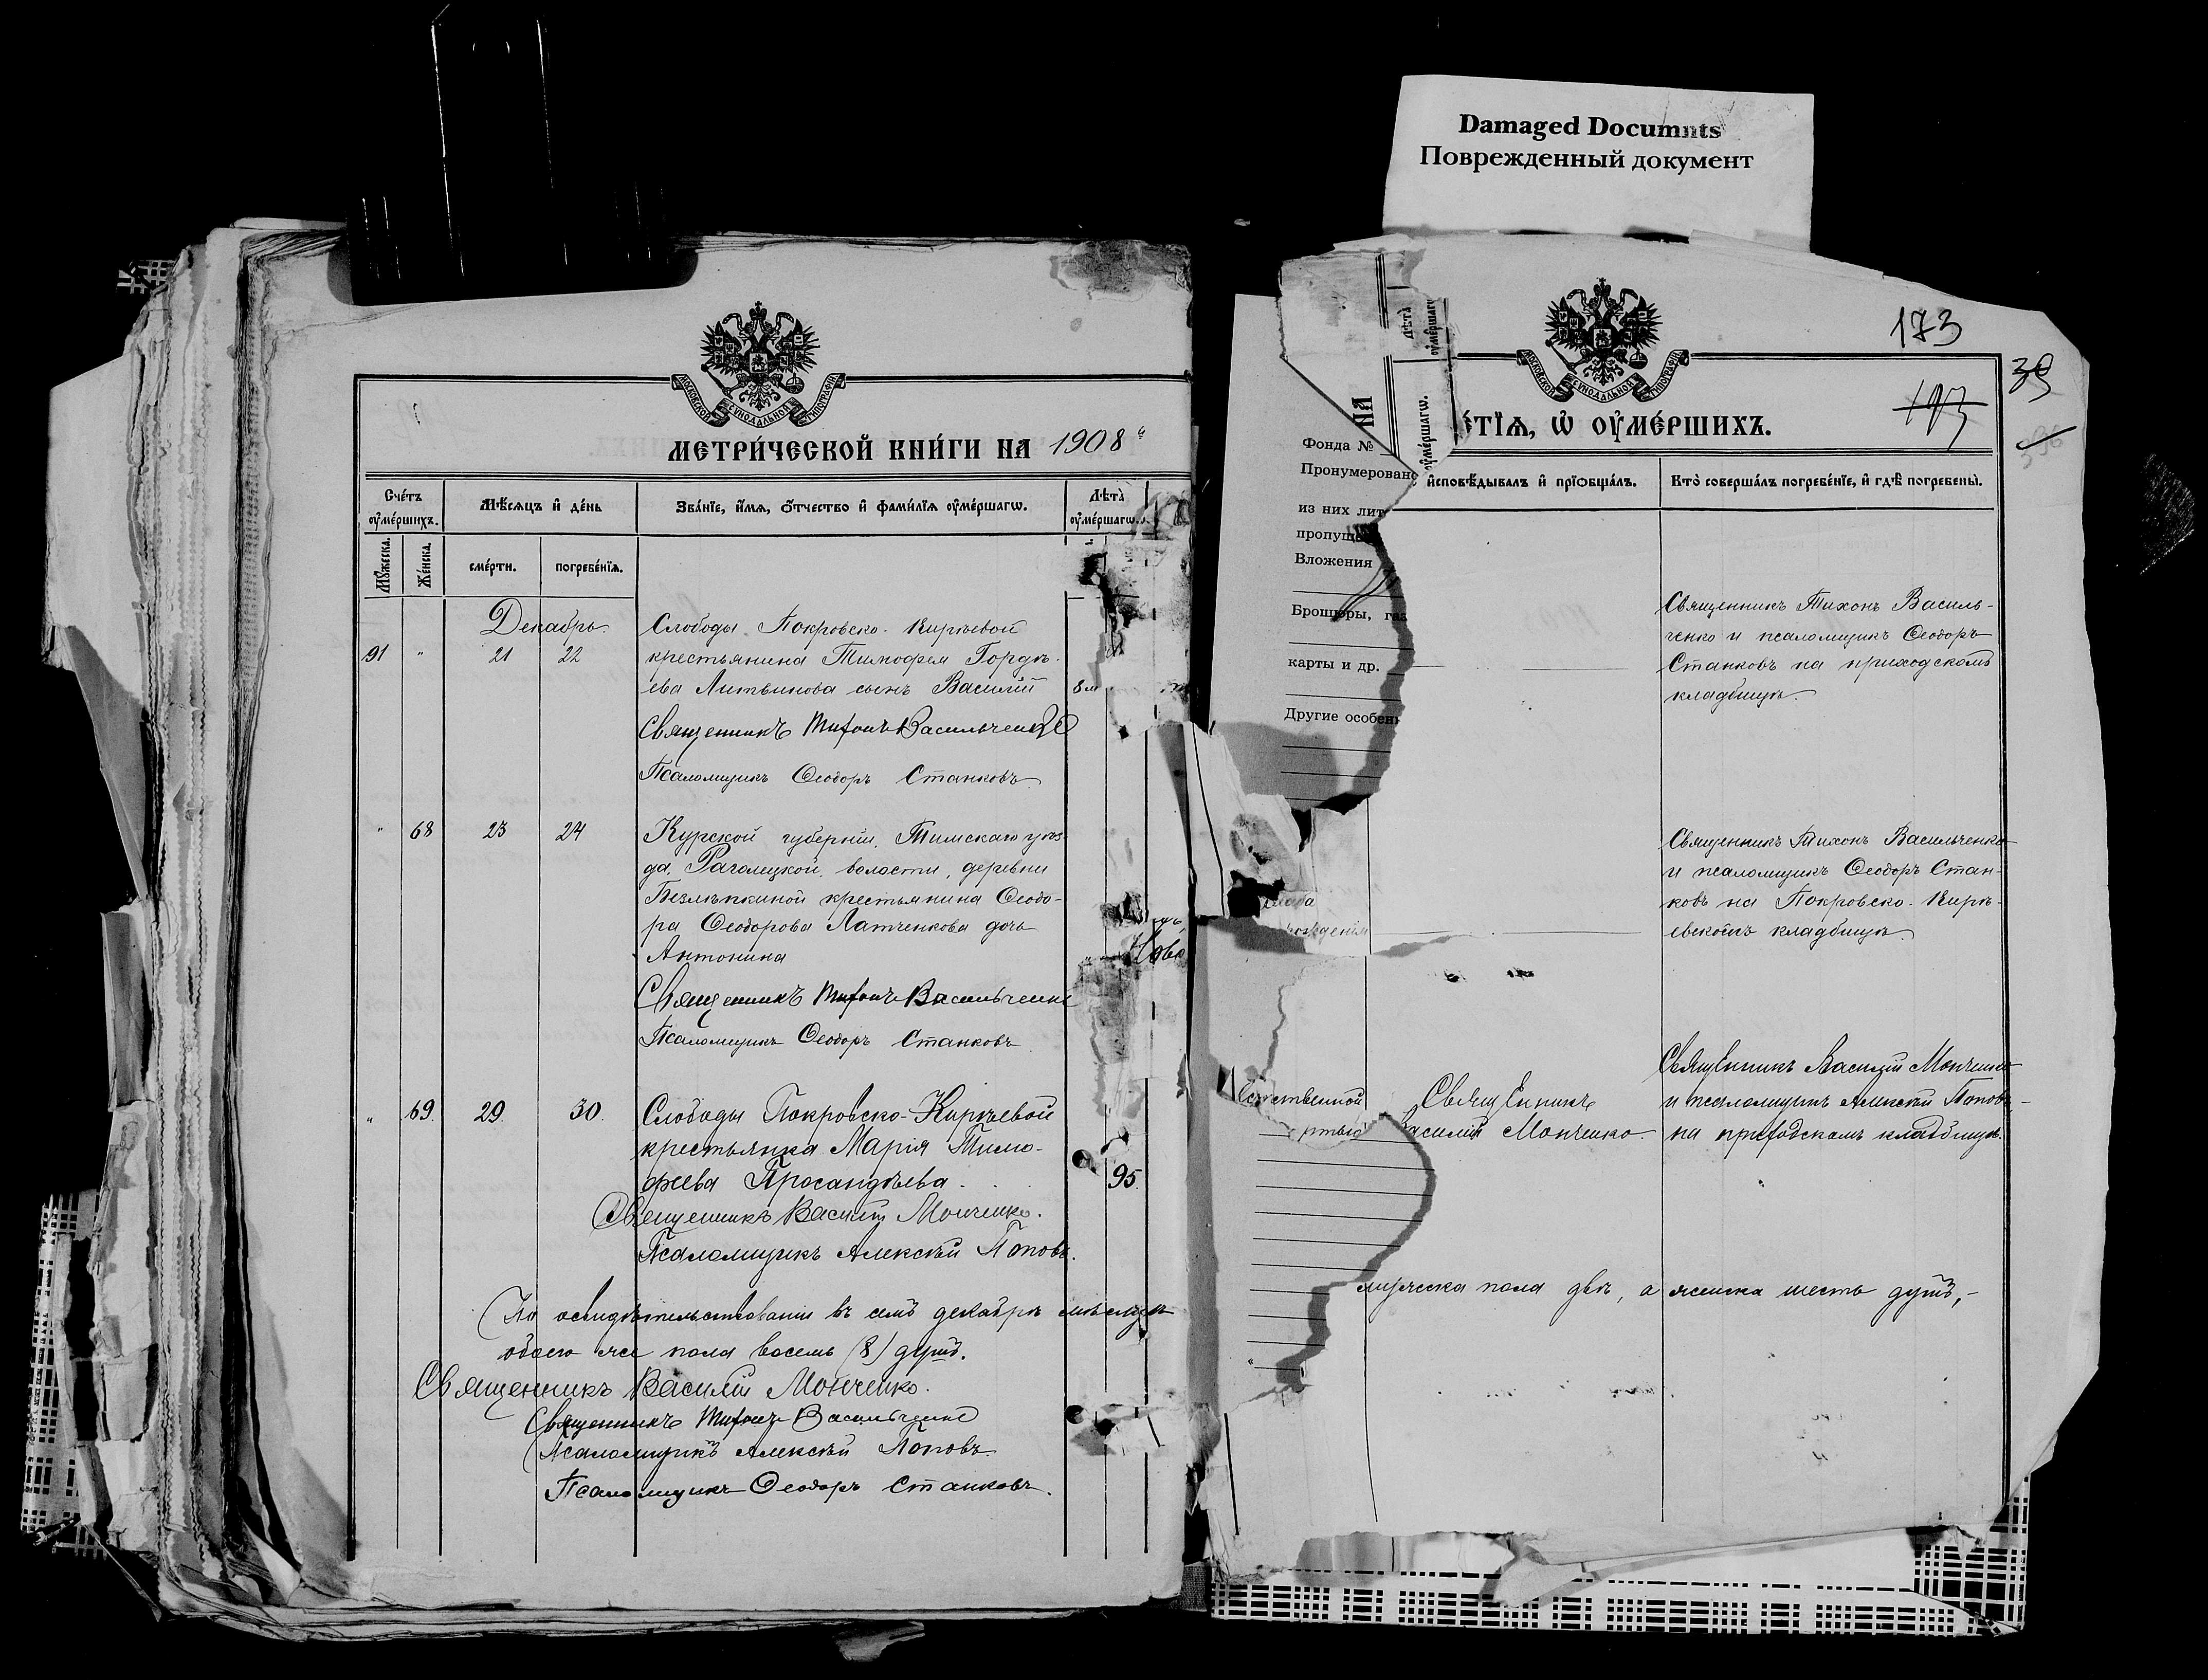 Damaged Documnts
Поврежденный документ
МОСКОВСКОЙ СѴНОДАЛЬНОЙ ТИПОГРАФІИ
МЕТРИ́ЧЕСКОЙ КНИ́ГИ НА 1908
Сче́тъ оу҆ме́ршихъ.
Мѣ́сяцъ и҆ де́нь
Зва́нїе, и҆́мя, ѻ҆́тчество и҆ фами́лїя оу҆ме́ршагѡ.
Лѣ́та оу҆ме́ршагѡ.
Му́жеска.
Же́нска.
сме́рти.
погребе́нїя.
Декабрь.
91 " 21 22
Слободы Покровско-Кирѣевой
крестьянина Тимофея Гордѣ-
ева Литвинова сынъ Василій
8 м
Священникъ Тихонъ Васильченко
Псаломщикъ Ѳеодоръ Станковъ
" 68 23 24
Курской губерніи, Тимскаго уѣз
да, волости, деревни
крестьянина Ѳеодо-
ра Ѳеодорова Латченкова дочь
Антонина
Священникъ Тихонъ Васильченко
Псаломщикъ Ѳеодоръ Станковъ
" 69. 29. 30.
Слободы Покровско-Кирѣевой
крестьянка Марія Тимо-
феева Просандѣева.
95.
Священникъ Василій Монченко.
Псаломщикъ Алексѣй Поповъ.
По освидѣтельствованіи въ семъ декабрѣ мѣсяцѣ
обоего же пола восемь (8) душъ.
Священникъ Василій Монченко.
Священникъ Тихонъ Васильченко
Псаломщикъ Алексѣй Поповъ.
Псаломщикъ Ѳеодоръ Станковъ.
173
193
МОСКОВСКОЙ СѴНОДАЛЬНОЙ ТИПОГРАФІИ
НА
Лѣ́та оу҆ме́ршагѡ
оу҆ме́ршагѡ.
ТЇЯ, Ѡ҆ ОУ҆МЕ́РШИХЪ.
Фонда №
Пронумеровано
из них лит
пропущ
Вложения
Брошюры, газ
карты и др.
Другие особен
и҆сповѣ́дывалъ и҆ прїѡбща́лъ.
Кто̀ соверша́лъ погребе́нїе, и҆ гдѣ̀ погребены̀.
Священникъ Тихонъ Василь-
ченко и псаломщикъ Ѳеодоръ
Станковъ на приходскомъ
кладбищѣ.
Священникъ Тихонъ Васильченко
и псаломщикъ Ѳеодоръ Стан-
ковъ на Покровско-Кирѣ-
евскомъ кладбищѣ.
Священникъ
Василій Монченко.
Священникъ Василій Монченко
и псаломщикъ Алексѣй Поповъ
на приходскомъ кладбищѣ.
мужеска пола двѣ, а женска шесть душъ,-